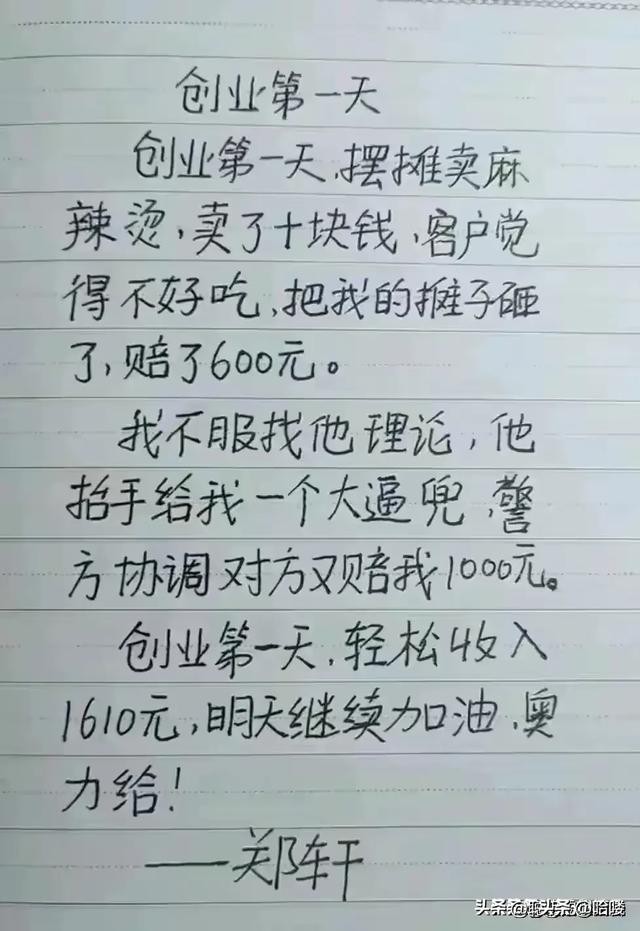 创业第一天
创业第一天,摆摊卖麻
辣烫,卖了十块钱,客户觉
得不好吃,把我的摊子砸
了,赔了600元。
我不服找他理论,他
抬手给我一个大逼兜,警
方协调对方又赔我1000元。
创业第一天,轻松收入
1610元,明天继续加油,奥
力给!
——郑轩